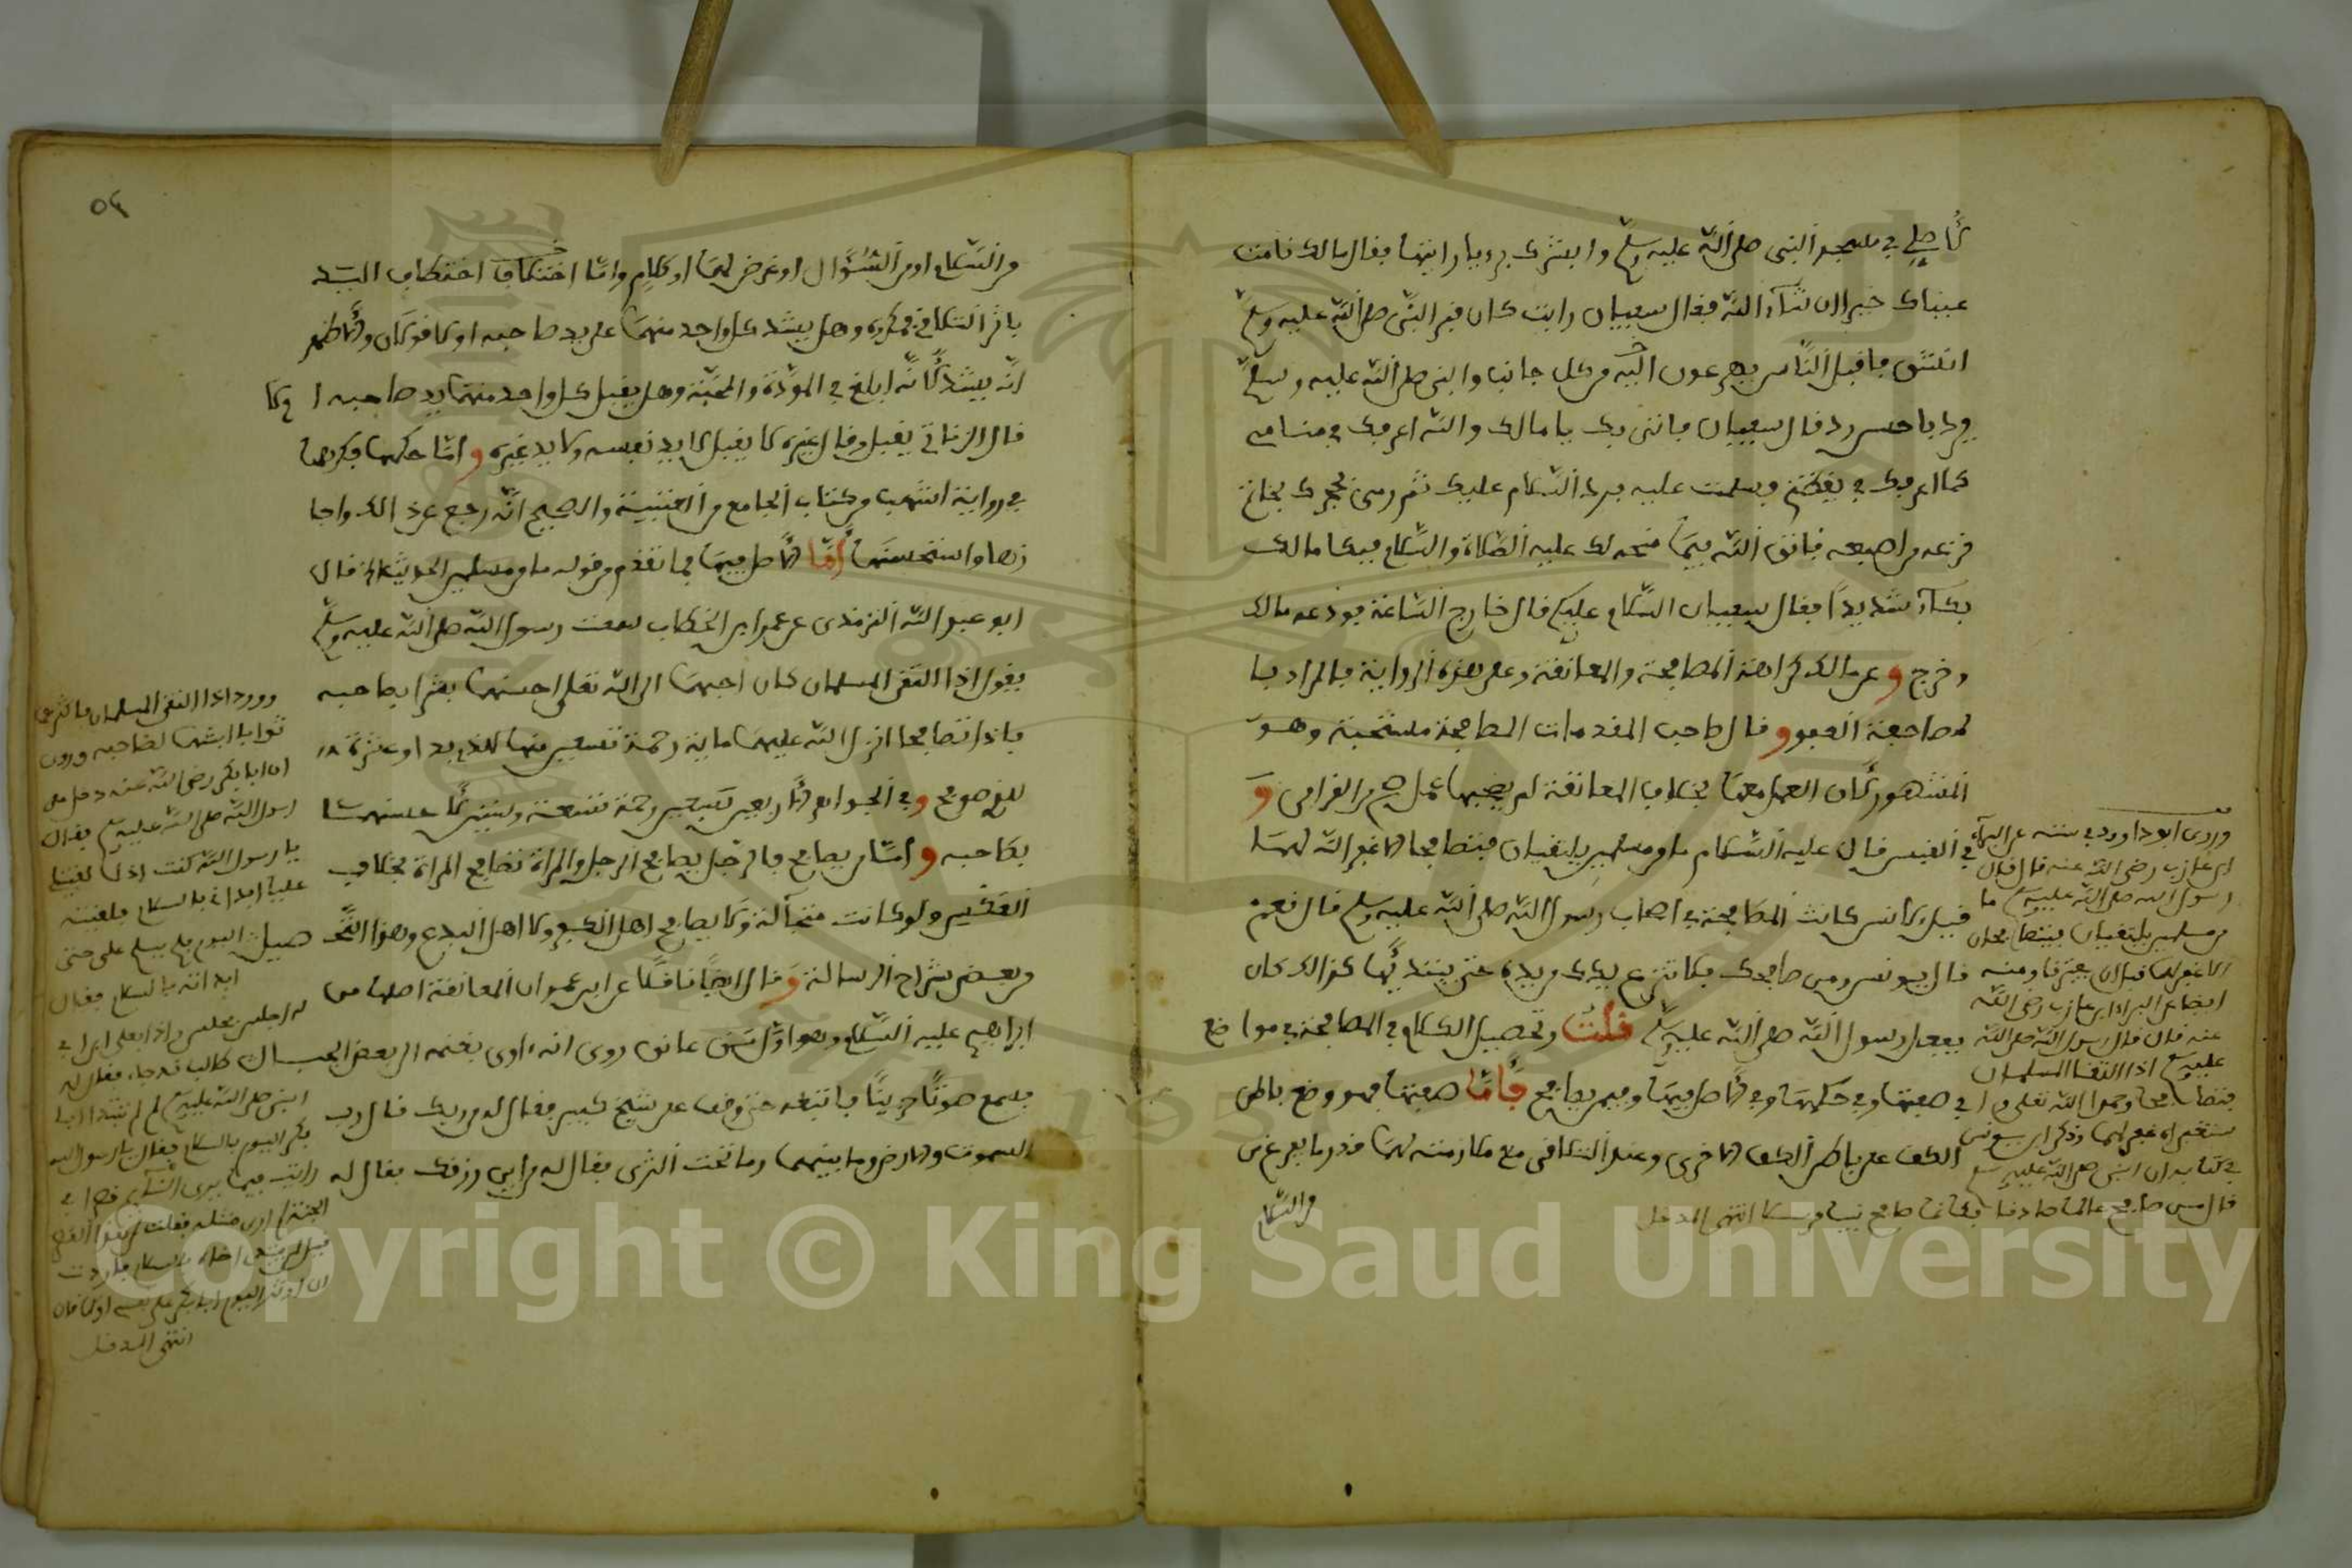 لأصلي في مسجد النبي صلى الله عليه وسلم وأبشرك برؤيا رأيتها فقال مالك نامت
عيناك خيرا إن شاء الله فقال سفيان رأيت كأن قبر النبي صلى الله عليه وسلم
انشق فأقبل الناس يهرعون إليه من كل جانب والنبي صلى الله عليه وسلم
يرد بأحسن رد قال سفيان فأتى بك يا مالك والله أعرفك في منامي
كما أعرفك في يقظتي فسلمت عليه فرد السلام عليك ثم رمى في حجرك بخاتم
نزعه من أصبعه فاتق الله فيما منحه لك عليه الصلاة والسلام فبكا مالك
بكاء شديدا فقال سفيان السلام عليكم قال خارج الساعة فودعه مالك
وخرج وعن مالك كراهة المصافحة والمعانقة وعلى هذه الرواية فالمراد بها
لمصافحة العفو وقال صاحب المقدمات المصافحة مستحبة وهو
المشهور لأن العمل معها بخلاف المعانقة لم يصحبها عمل صح من القرافي و
في القبس قال عليه السلام ما من مسلمين يلتقيان فيتصافحا إلا غفر الله لهما
قيل لأنس كانت المصافحة في أصحاب رسول الله صلى الله عليه وسلم قال نعم
قال يونس ومن صافحك فلا تنزع يدك من يده حتى يبتدئها كذلك كان
يفعل رسول الله صلى الله عليه وسلم قلت وتحصيل الكلام في المصافحة في مواضع
في صفتها وفي حكمها وفي الأصل فيها وفيمن يصافح فأما صفتها فهو وضع باطن
الكف على باطن الكف الأخرى وعند التلاقي مع ملازمته لهما قدر ما يفرغ من
من السلام
وروى أبو داوود في سننه عن البراء
ابن عازب رضي الله عنه قال قال
رسول الله صلى الله عليه وسلم ما
من مسلمين يلتقيان فيتصافحان
إلا غفر لهما قبل أن يفترقا ومنه
أيضا عن البراء ابن عازب رضي الله
عنه قال قال رسول الله صلى الله
عليه وسلم إذا التقا المسلمان
فتصافحا وحمدا الله تعلى و
ستغفراه غفر لهما وذكر ابن يونس
في كتابه أن النبي صلى الله عليه وسلم
قال من صافح عالما صادقا فكأنما صافح نبيا مرسلا انتهى المدخل
٥٤
من السلام أو من السؤال أو غرض لهما أو كلام وأما اختطاف اليد
بإثر التلاقي فمكروه وهل يشد كل واحد منهما على يد صاحبه أو لا قولان والأظهر
أنه يشد لأنه أبلغ في المودة والمحبة وهل يقبل كل واحد منهما يد صاحبه أو لا
قال الزناتي يقبل وقال غيره لا يقبل لا يد نفسه ولا يد غيره وأما حكمها فكرهها
في رواية أشهب من كتاب الجامع من العتبية والصحيح أنه رجع عن ذلك وأجا
زها واستحسنها أما الأصل فيها فما تقدم من قوله ما من مسلمين الحديث قال
أبو عبد الله الترمذي عن عمر ابن الخطاب سمعت رسول الله صلى الله عليه وسلم
يقول إذا التقى المسلمان كان أحبهما إلى الله تعلى أحسنهما بشرا بصاحبه
فإذا تصافحا أنزل الله عليهما ماية رحمة تسعين منها للذي بدا وعشرة
للذي صوفح وفي الجواهر
بصاحبه وأما من يصافح فالرجل يصافح الرجل والمرأة تصافح المرأة بخلاف
العكس ولو كانت متجالة ولا يصافح أهل الكفر ولا أهل البدع
من بعض شراح الرسالة وقال أيضا ناقلا عن أبي عمر أن المعانقة أصلها من
إبراهيم عليه السلام وهو أول من عانق روى أنه أوى بغنمه إلى بعض الجبال
فسمع صوتا حزينا فاتبعه حتى وقف على شيخ كبير فقال له من ربك قال رب
السموت والأرض وما بينهما وما تحت الثرى فقال له من أين رزقك فقال له
وورد إذا التقى المسلمان فأكثرهما
ثوابا أبشهما لصاحبه وروى
أن أبا بكر رضي الله عنه دخل على
رسول الله صلى الله عليه وسلم فقال
يا رسول الله كنت إذا لقيت
عليا ابدأني بالسلام فلقيته
اليوم فلم يسلم علي حتى
ابدأته بالسلام فقال
النبي صلى الله عليه وسلم لم لم تبتدا أبا
بكر اليوم بالسلام فقال يا رسول الله
رأيت فيما يرى النائم قصرا في
الجنة لم أرى مثله فقلت لمن هذا القصر
انتهى المدخل